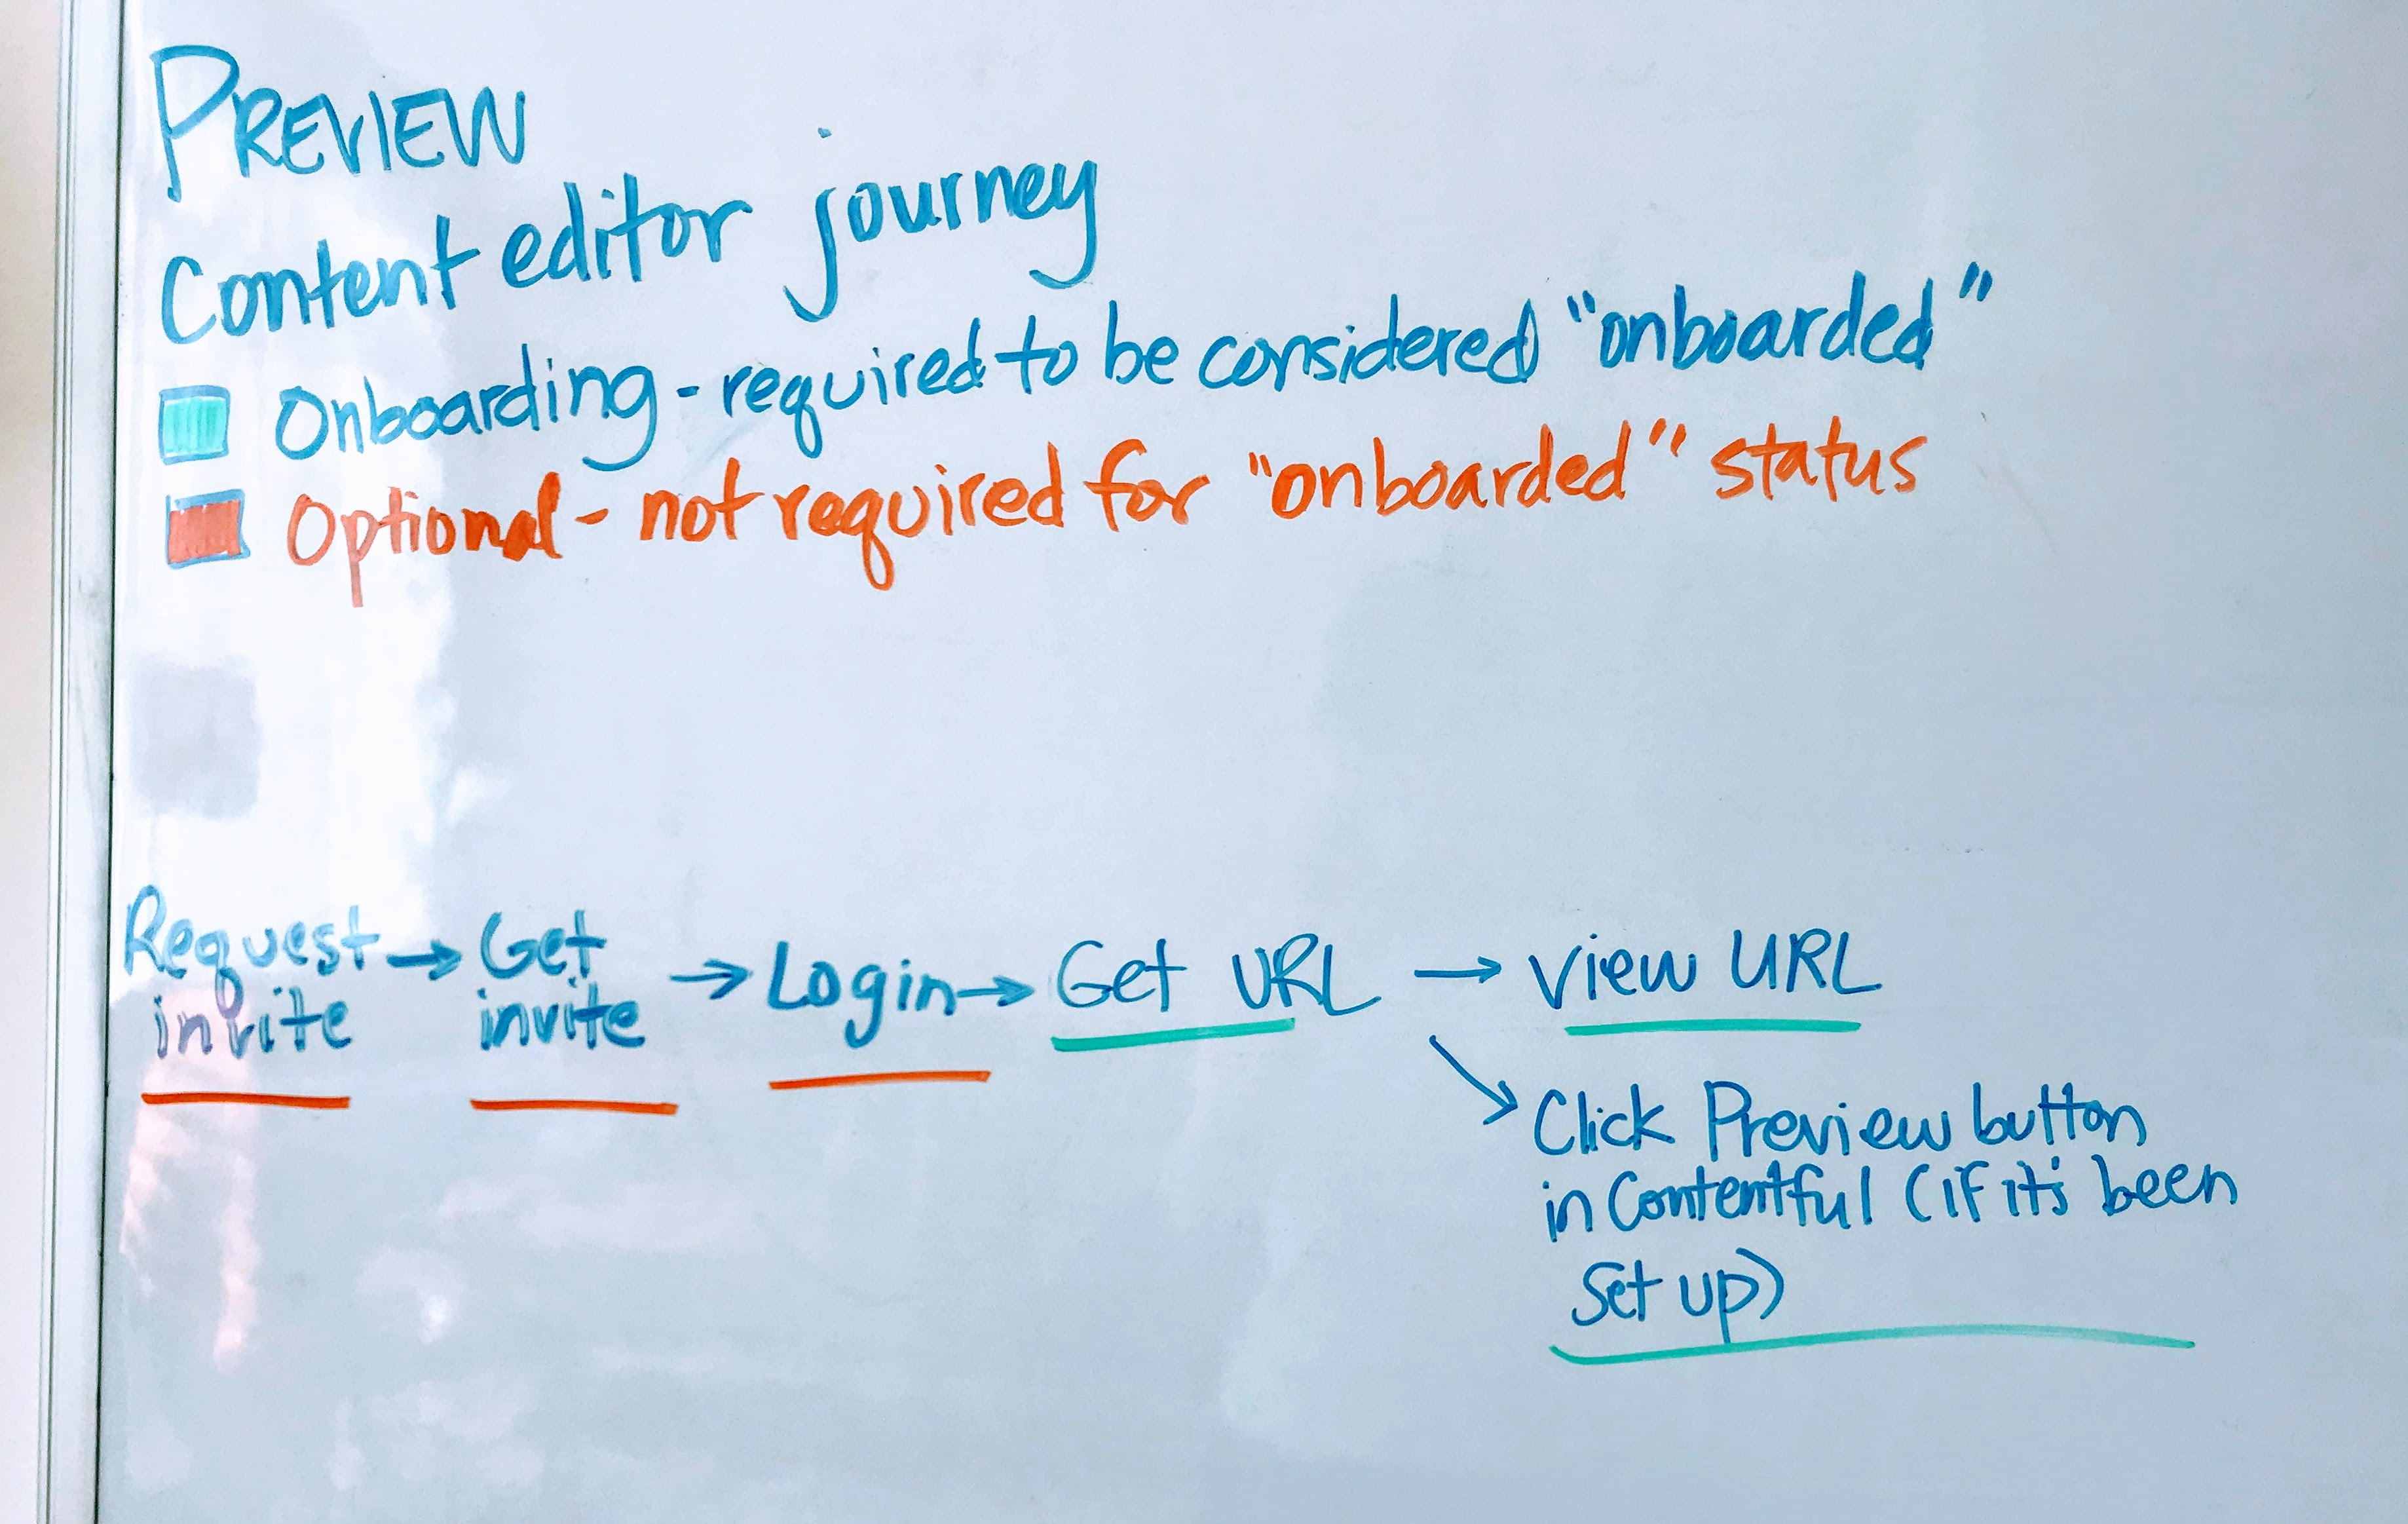 PREVIEW
Content editor journey
Onboarding - required to be considered "onboarded"
Optional - not required for "onboarded" status
Request → Get → Login → Get URL → View URL
invite invite
Click Preview button
in Contentful (if it's been
Set up)